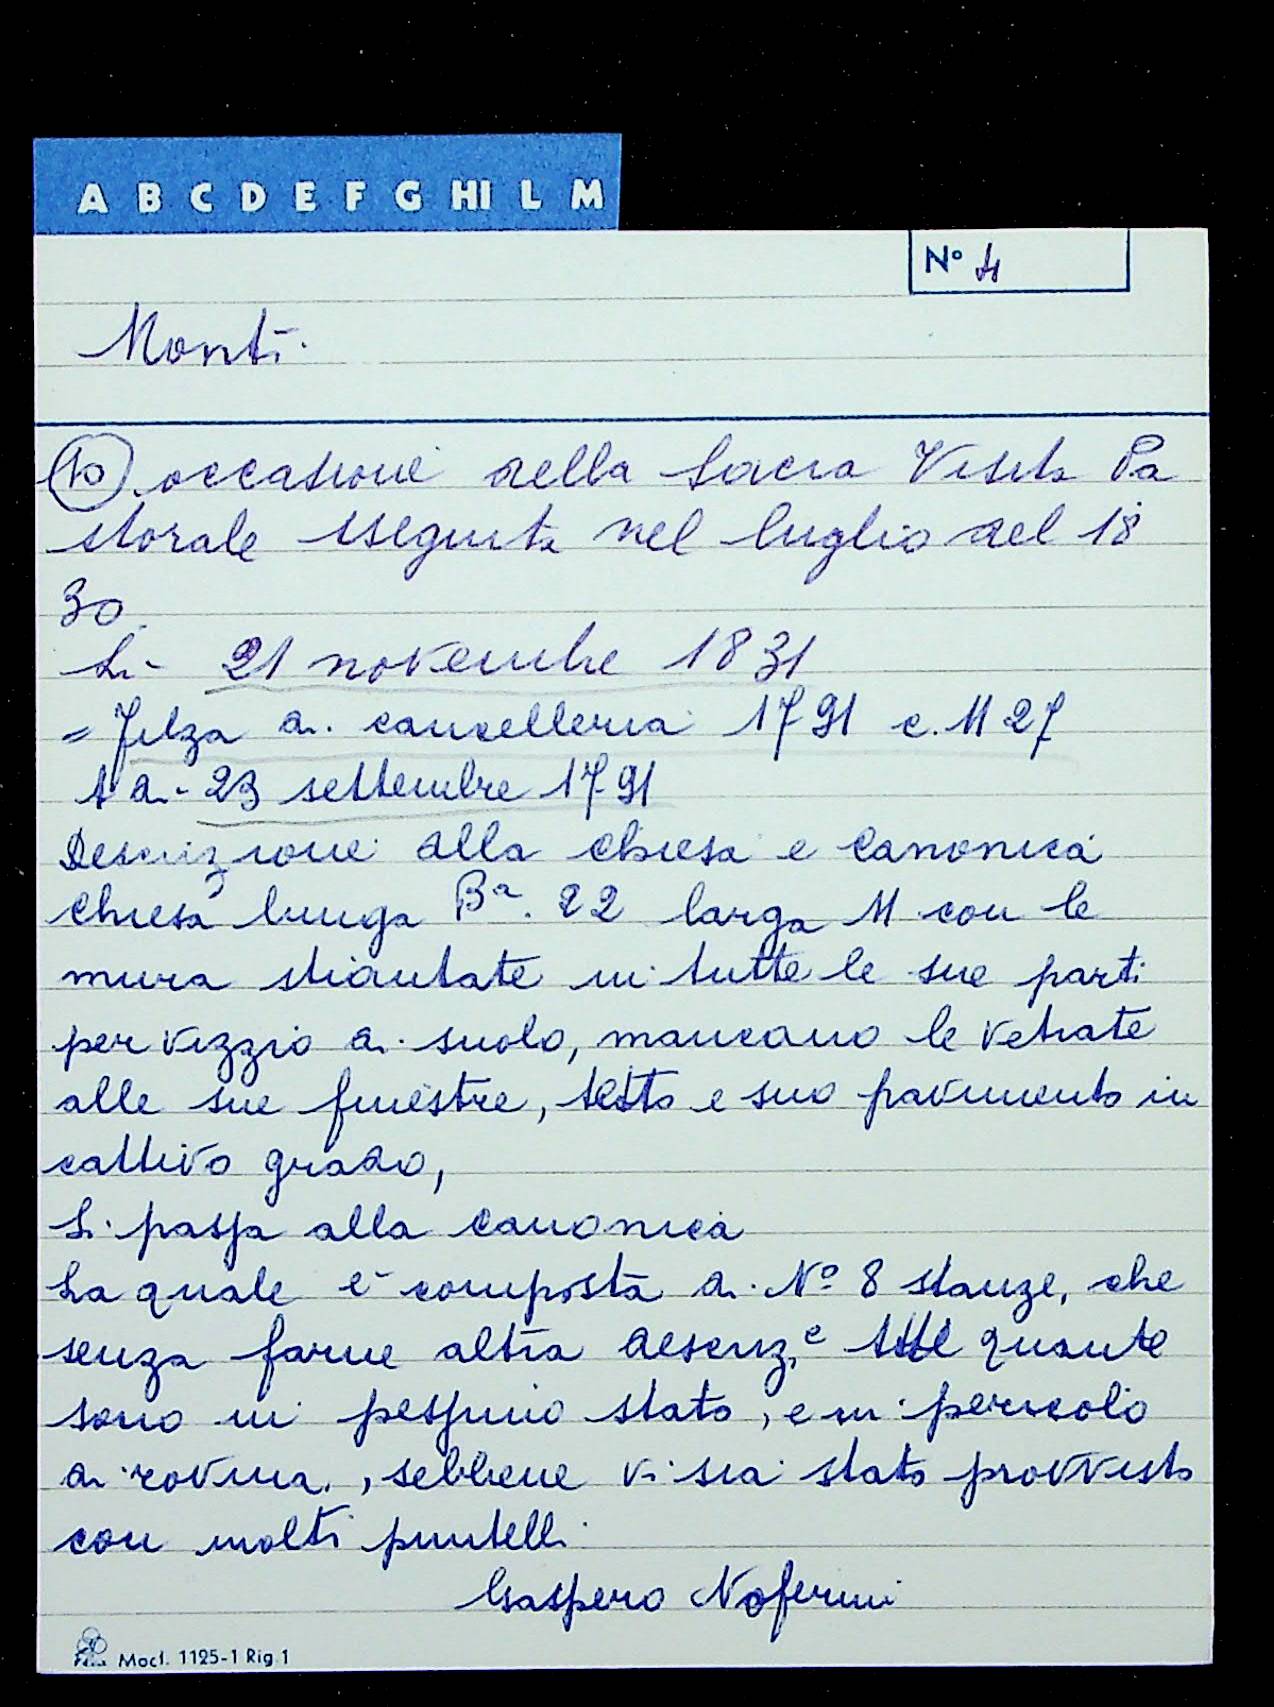 A B C D E F G HI L M
N° 4
Monti
10 occasione della Sacra Visita Pa
storale eseguita nel luglio del 18
30.
Lì 21 novembre 1831
= Filza di cancelleria 1791 c. 1127
A di 23 settembre 1791
Descrizione alla chiesa e canonica
Chiesa lunga Bª. 22 larga 11 con le
mura stiantate in tutte le sue parti
per vizzio di suolo, mancano le vetrate
alle sue finestre, tetto e suo pavimento in
cattivo grado,
Si passa alla canonica
La quale è composta di N° 8 stanze, che
senza farne altra descriz.e tutte quante
sono in pessimo stato, e in pericolo
di rovina, sebbene vi sia stato provvisto
con molti puntelli
Gaspero Noferini
Mod. 1125-1 Rig. 1